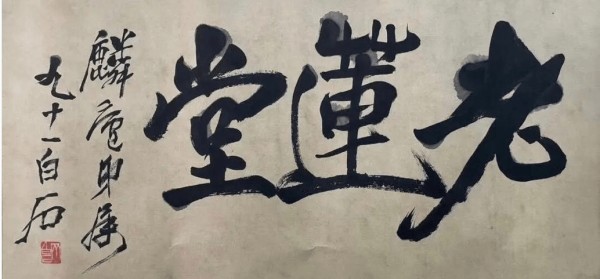 老蓮堂
麟廬即屬
九十一白石